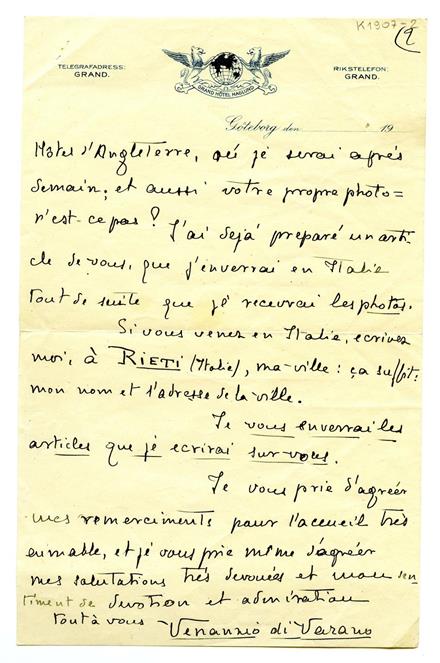 K1907-2
(2
TELEGRAFADRESS:
GRAND.
RIKSTELEFON:
GRAND.
GRAND HÔTEL HAGLUND
Göteborg den 19
Hotes d'Angleterre, oú je serai aprés
demain; et aussi votre propre photo=
n'est-ce pas? J'ai dejá preparé un arti-
cle de vous, que j'enverrai en Italie
tout de suite que je recevrai les photos.
Si vous venez en Italie, ecrivez
moi, à RIETI (Italie), ma-ville: ça suffit:
mon nom et l'adresse de la-ville.
Je vous enverrai les
articles que je ecrirai sur-vous.
Je vous prie d'agréer
mes remerciments pour l'accueil très
enmable, et je vous prie même d'agréer
mes salutations trés devouées et mon sen
timent de devotion et admiration
tout à vous Venanzio di Varano